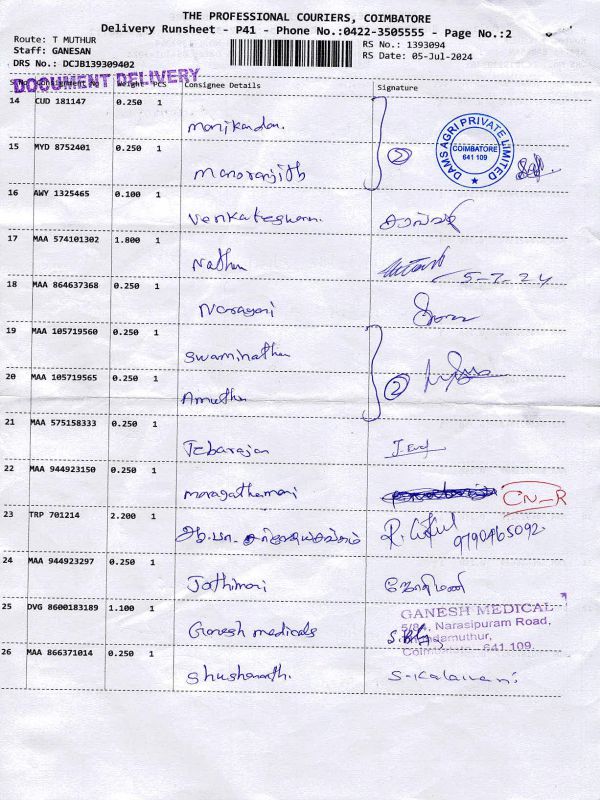 THE PROFESSIONAL COURIERS, COIMBATORE
Delivery Runsheet - P41 - Phone No.:0422-3505555 - Page No.:2
Route: T MUTHUR
Staff: GANESAN
DRS No.: DCJB139309402
RS No.: 1393094
RS Date: 05-Jul-2024
DOCUMENT DELIVERY
Weight PCS Consignee Details Signature
14 CUD 181147 0.250 1 Manikandan.
15 MYD 8752401 0.250 1 Manoranjith 2
DAMS AGRI PRIVATE LIMITED
COIMBATORE
641 109
16 AWY 1325465 0.100 1 Venkateshwaran.
17 MAA 574101302 1.800 1 Nathan 5-7-24
18 MAA 864637368 0.250 1
19 MAA 105719560 0.250 1 Swaminathan
20 MAA 105719565 0.250 1 Amutha 2
21 MAA 575158333 0.250 1 Jebarajan
22 MAA 944923150 0.250 1 Maragathamani CN_R
23 TRP 701214 2.200 1
24 MAA 944923297 0.250 1 Jothimani ஜோதிமணி
25 DVG 8600183189 1.100 1 Ganesh medicals
GANESH MEDICAL
5/84, Narasipuram Road,
641 109.
26 MAA 866371014 0.250 1 S-Kalaivani